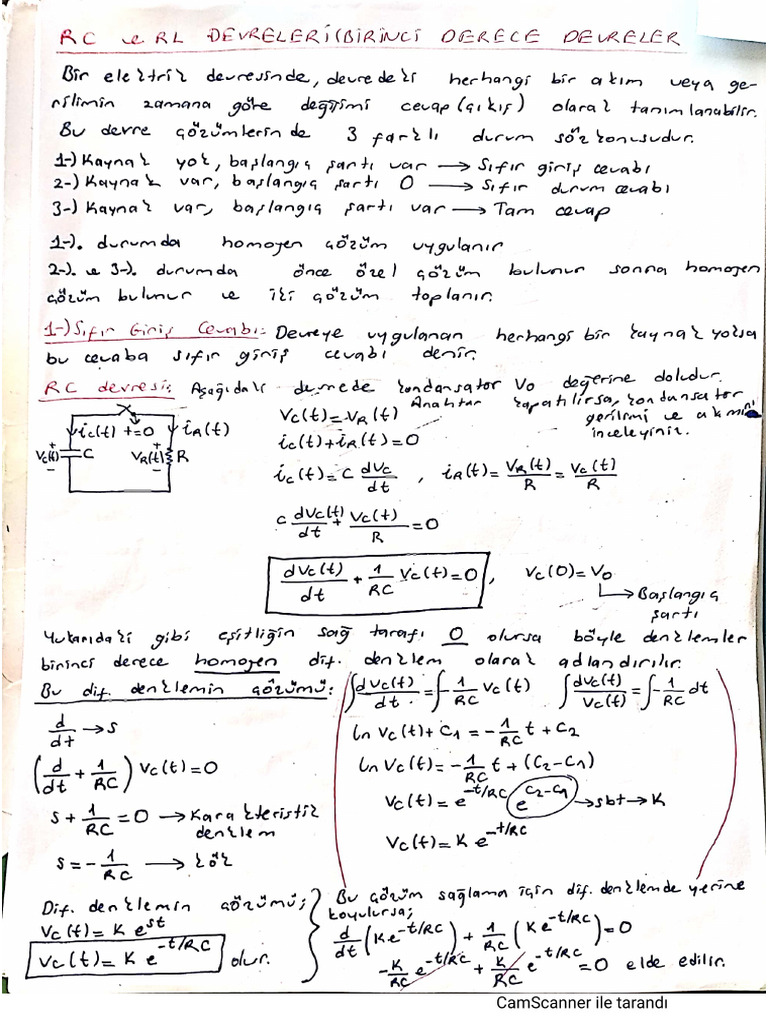 RC ve RL DEVRELERİ(BİRİNCİ DERECE DEVRELER
Bir elektrik devresinde, devredeki herhangi bir akım veya ge-
rilimin zamana göre değişimi cevap (çıkış) olarak tanımlanabilir.
Bu devre çözümlerinde 3 farklı durum söz konusudur.
1-) Kaynak yok, başlangıç şartı var → Sıfır giriş cevabı
2-) Kaynak var, başlangıç şartı 0 → Sıfır durum cevabı
3-) Kaynak var, başlangıç şartı var → Tam cevap
1-). durumda homojen çözüm uygulanır
2-). ve 3-). durumda önce özel çözüm bulunur sonra homojen
çözüm bulunur ve iki çözüm toplanır.
1-) Sıfır Giriş Cevabı: Devreye uygulanan herhangi bir kaynak yoksa
bu cevaba sıfır giriş cevabı denir.
RC devresi: Aşağıdaki devrede kondansatör V0 değerine doludur.
Anahtar kapatılırsa, kondansatör
gerilimi ve akımını
inceleyiniz.
ic(t) t=0 iR(t)
Vc(t) + - C VR(t) + - R
Vc(t) = VR(t)
ic(t) + iR(t) = 0
ic(t) = C dVc/dt , iR(t) = VR(t)/R = Vc(t)/R
C dVc(t)/dt + Vc(t)/R = 0
dVc(t)/dt + 1/RC Vc(t) = 0 , Vc(0) = V0
→ Başlangıç
şartı
Yukarıdaki gibi eşitliğin sağ tarafı 0 olursa böyle denklemler
birinci derece homojen dif. denklem olarak adlandırılır.
Bu dif. denklemin çözümü:
d/dt → s
(d/dt + 1/RC) Vc(t) = 0
s + 1/RC = 0 → Karakteristik
denklem
s = - 1/RC → kök
∫dVc(t)/dt = ∫- 1/RC Vc(t) ∫dVc(t)/Vc(t) = ∫- 1/RC dt
ln Vc(t) + C1 = - 1/RC t + C2
ln Vc(t) = - 1/RC t + (C2-C1)
Vc(t) = e^-t/RC e^C2-C1 → sbt → K
Vc(t) = K e^-t/RC
Dif. denklemin çözümü;
Vc(t) = K e^st
Vc(t) = K e^-t/RC olur.
Bu çözüm sağlama için dif. denklemde yerine
koyulursa;
d/dt (K e^-t/RC) + 1/RC (K e^-t/RC) = 0
- K/RC e^-t/RC + K/RC e^-t/RC = 0 elde edilir.
CamScanner ile tarandı